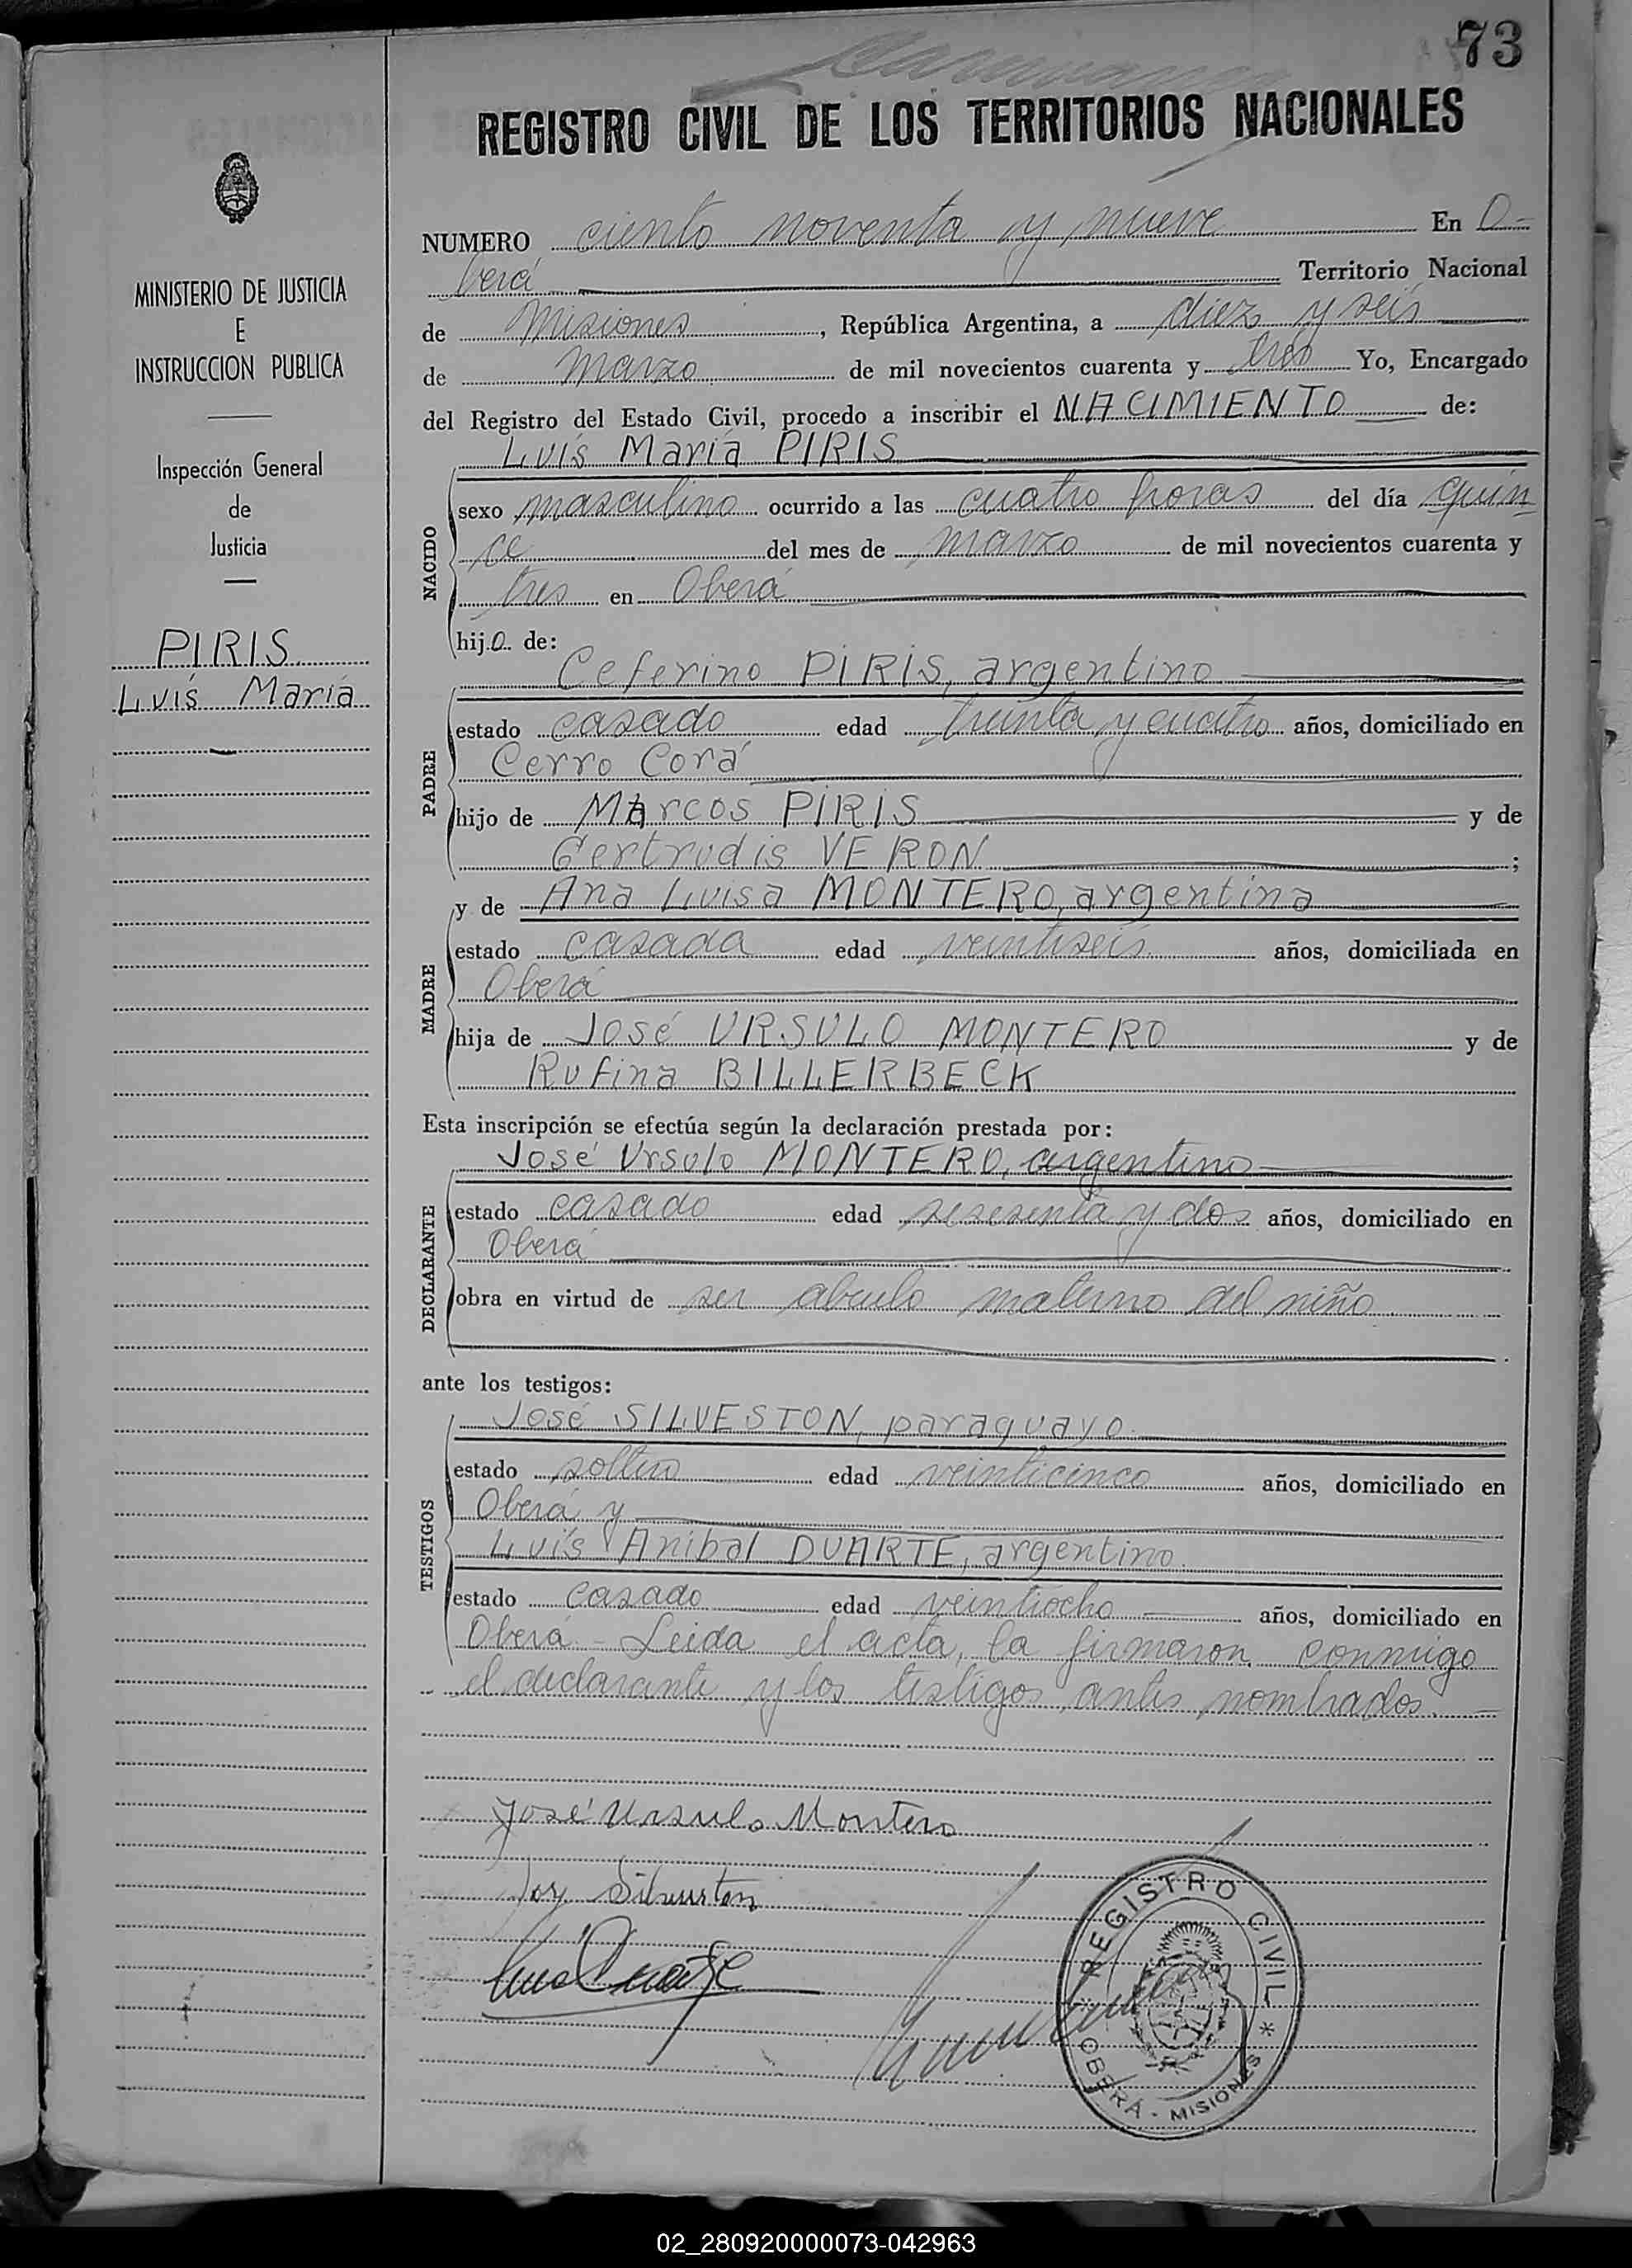 73
REGISTRO CIVIL DE LOS TERRITORIOS NACIONALES
MINISTERIO DE JUSTICIA
E
INSTRUCCION PUBLICA
Inspección General
de
Justicia
PIRIS
Luis María
NUMERO ciento noventa y nueve En O-
berá Territorio Nacional
de Misiones, República Argentina, a diez y seis
de marzo de mil novecientos cuarenta y tres Yo, Encargado
del Registro del Estado Civil, procedo a inscribir el NACIMIENTO de:
Luis María PIRIS
NACIDO
sexo masculino ocurrido a las cuatro horas del día quin
ce del mes de marzo de mil novecientos cuarenta y
tres en Oberá
hijo de:
Ceferino PIRIS, argentino
PADRE
estado casado edad treinta y cuatro años, domiciliado en
Cerro Corá
hijo de Marcos PIRIS y de
Gertrudis VERON;
y de Ana Luisa MONTERO, argentina
MADRE
estado casada edad veintiseis años, domiciliada en
Oberá
hija de José URSULO MONTERO y de
Rufina BILLERBECK
Esta inscripción se efectúa según la declaración prestada por:
José Ursulo MONTERO, argentino
DECLARANTE
estado casado edad sesesenta y dos años, domiciliado en
Oberá
obra en virtud de ser abuelo materno del niño
ante los testigos:
José SILVESTON, paraguayo
TESTIGOS
estado soltero edad veinticinco años, domiciliado en
Oberá y
Luis Anibal DUARTE, argentino
estado casado edad veintiocho años, domiciliado en
Oberá - Leida el acta, la firmaron conmigo
el declarante y los testigos antes nombrados.
José Ursulo Montero
REGISTRO CIVIL *
OBERÁ - MISIONES
02_280920000073-042963